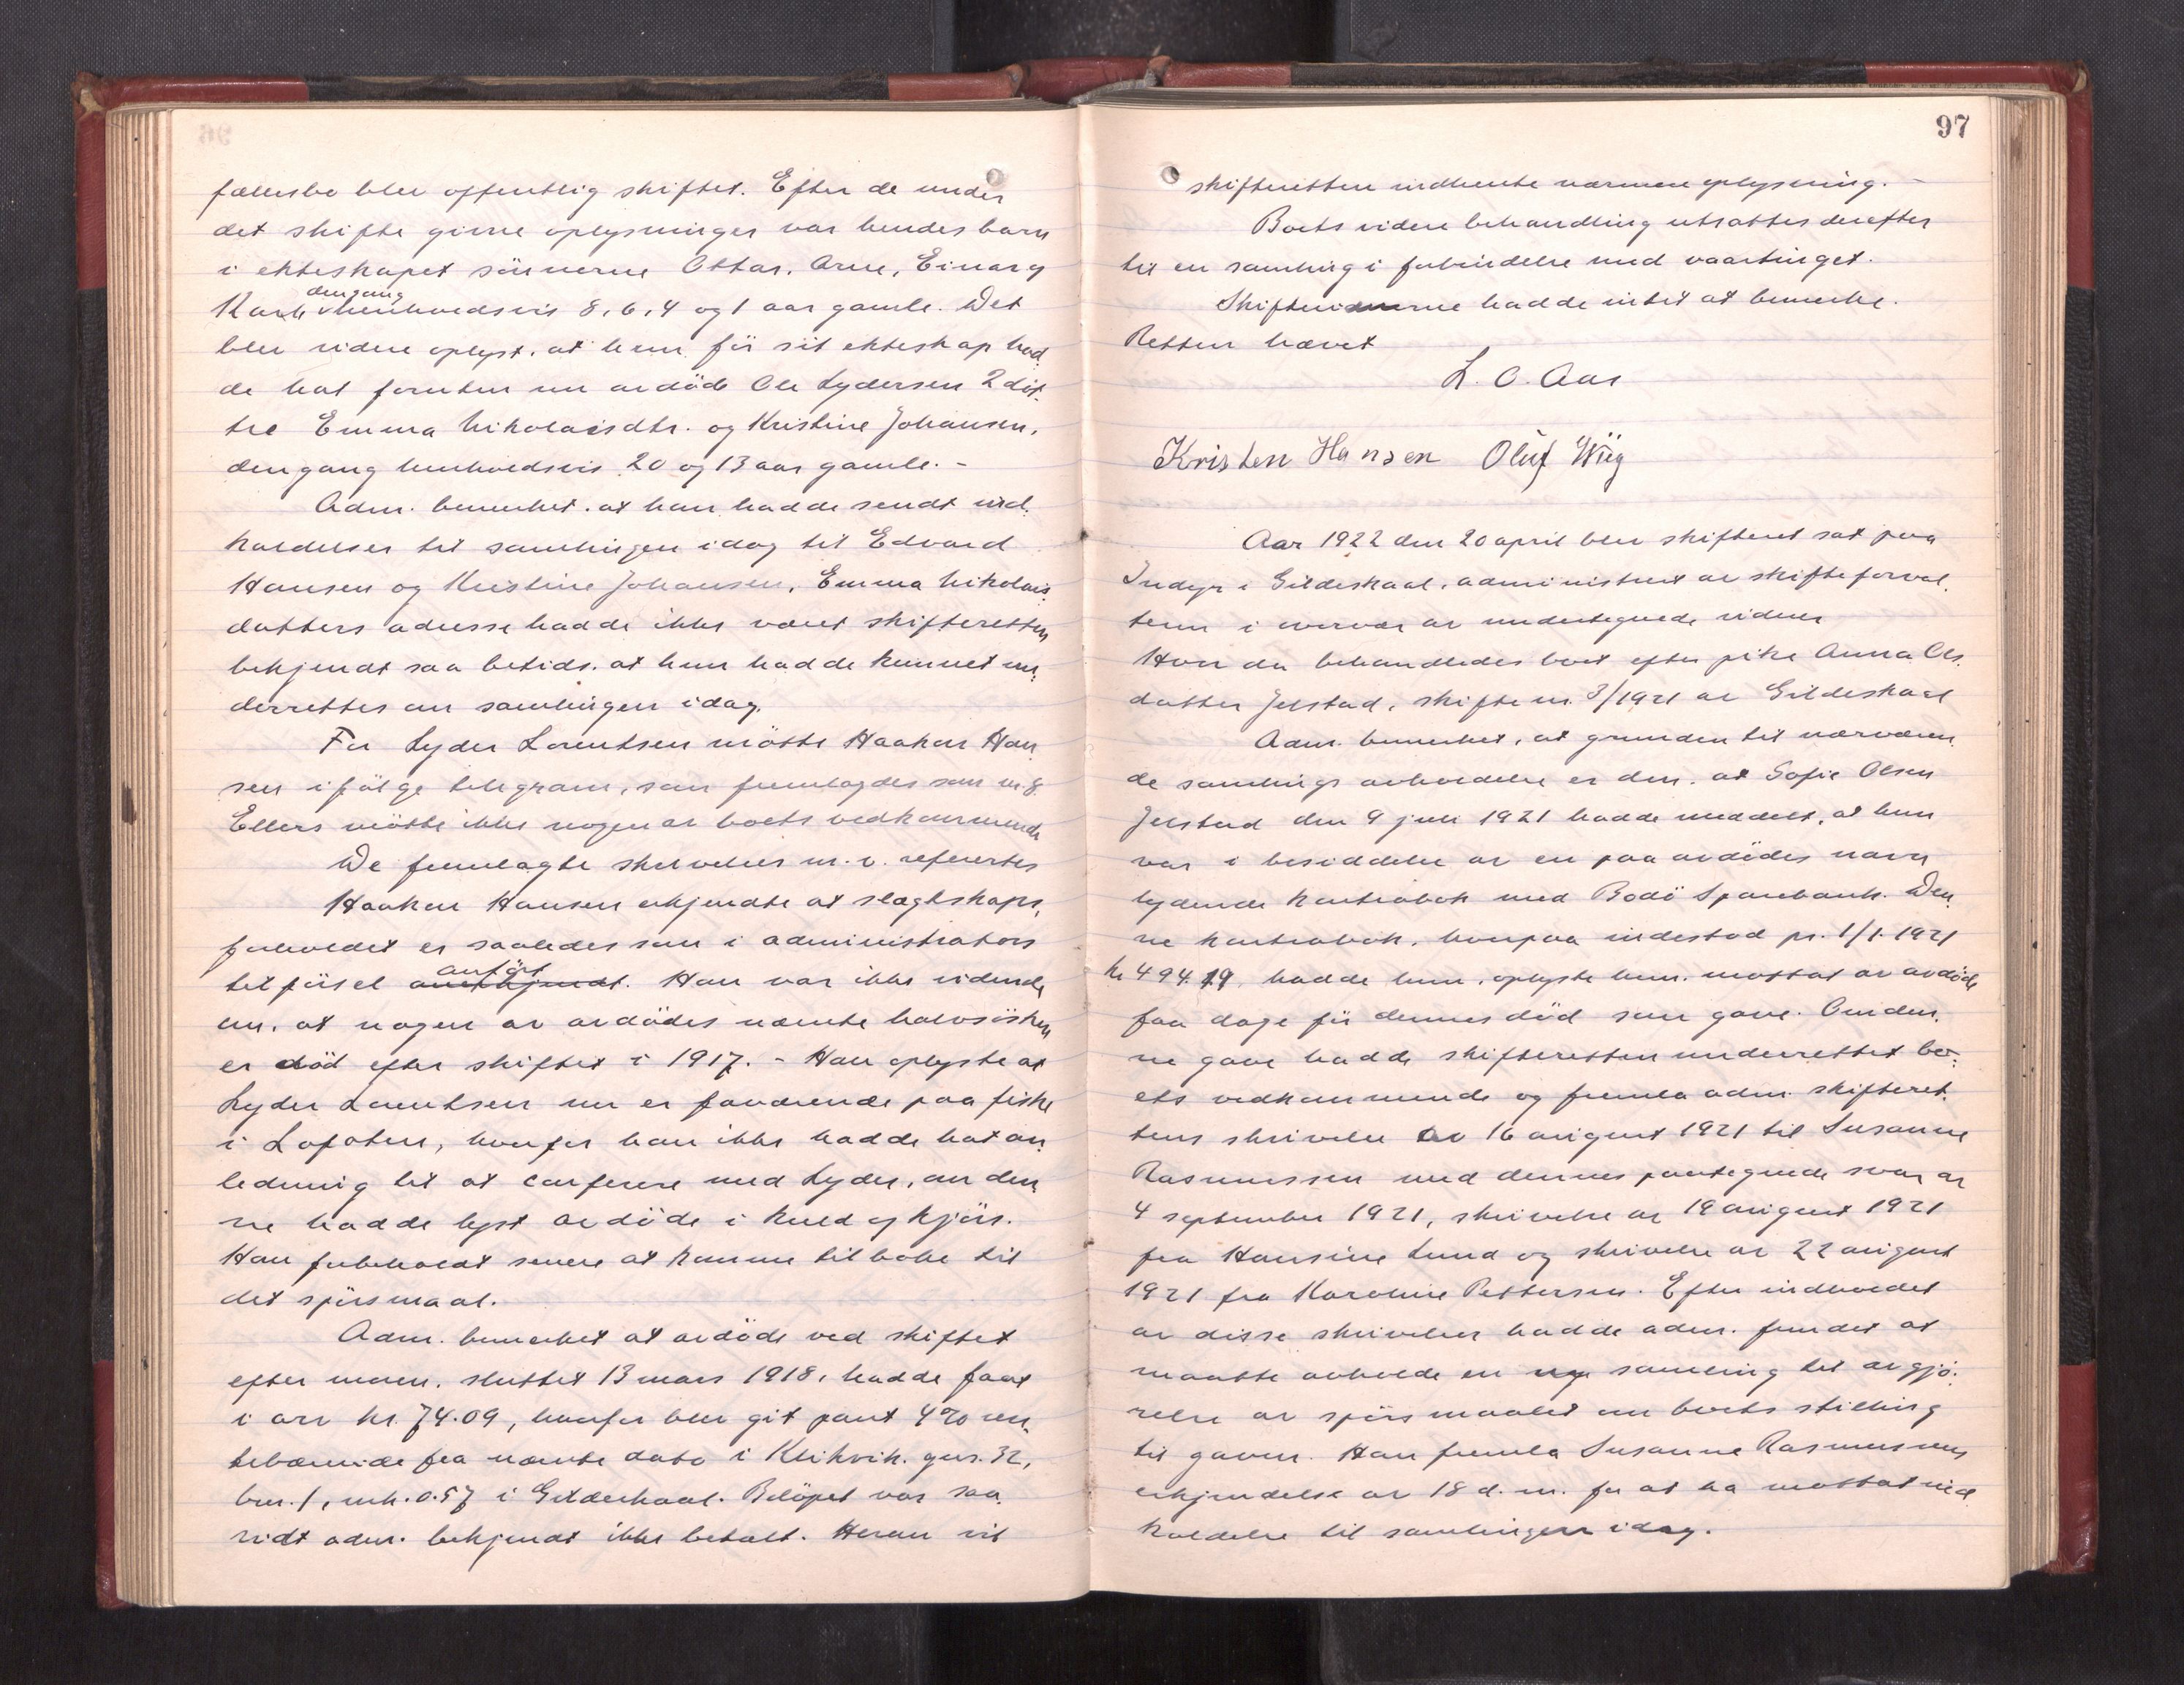 fællesbo blev offentlig skiftet. Efter de under
det skifte givne oplysninger var hendes barn
i ekteskapet sönnerne Ottar, Arne, Einar og
dengang
Karl henholdsvis 8, 6, 4 og 1 aar gamle. Det
blev videre oplyst, at hun för sit ekteskap had-
de hat foruten nu avdöde Ole Lydersen 2 döt-
tre Emma Nikolaisdtr. og Kristine Johansen,
dengang henholdsvis 20 og 13 aar gamle. -
Adm. bemerket, at han hadde sendt ind-
kaldelser til samlingen idag til Edvard
Hansen og Kristine Johansen. Emma Nikolais-
datters adresse hadde ikke været skifteretten
bekjendt saa betids, at hun hadde kunnet un-
derrettes om samlingen idag.
For Lyder Lorentsen mötte Haakon Han-
sen ifölge telegram, som fremlagdes som nr. 8.
Ellers mötte ikke nogen av boets vedkommende
De fremlagte skrivelser m. v. refertes
Haakon Hansen erkjendte at slægtskaps-
forholdet er saaledes som i administrators
anfört
tilförsel anerkjendt. Han var ikke vidende
om, at nogen av avdödes nævnte halvsösken
er död efter skiftet i 1917. - Han oplyste at
Lyder Lorentsen nu er fraværende paa fiske
i Lofoten, hvorfor han ikke hadde hat an-
ledning til at conferere med Lyder, om den-
ne hadde lyst avdöde i kuld og kjön.
Han forbeholdt senere at komme tilbake til
det spörsmaal.
Adm. bemerket at avdöde ved skiftet
efter moren, sluttet 13 mars 1918, hadde faat
i arv kr. 74.09, hvorfor blev git pant 4% ren-
tebærende fra nævnte dato i Kleikvik, gnr. 32,
bnr. 1, mk. 0.57 i Gildeskaal. Belöpet var saa-
vidt adm. bekjendt ikke betalt. Herom vil
97
skifteretten indhente nærmere oplysning. -
Boets videre behandling utsattes derefter
til en samling i forbindelse med vaartinget.
Skiftevidnerne hadde intet at bemerke.
Retten hævet
L. O. Aas
Kristen Hansen Oluf Wiig
Aar 1922 den 20 april blev skifteret sat paa
Indyr i Gildeskaal, administrert av skifteforval-
teren i overvær av undertegnede vidner
Hvor da behandledes boet efter pike Anna Ols-
datter Jelstad, skifte nr. 3/1921 av Gildeskaal
Adm. bemerket, at grunden til nærværen-
de samlings avholdelse er den, at Sofie Olsen
Jelstad den 9 juli 1921 hadde meddelt, at hun
var i besiddelse av en paa avdödes navn
lydende kontrabok med Bodö Sparebank. Den-
ne kontrabok, hvorpaa indestod pr. 1/1-1921
kr 494.19, hadde hun, oplyste hun, mottat av avdöde
faa dage för dennes död som gave. Om den-
ne gave hadde skifteretten underrettet bo-
ets vedkommende og fremla adm. skifteret-
tens skrivelse av 16 august 1921 til Susanne
Rasmussen med dennes paategnede svar av
4 september 1921, skrivelse av 19 august 1921
fra Hansine Lund og skrivelse av 22 august
1921 fra Karoline Pettersen. Efter indholdet
av disse skrivelser hadde adm. fundet at
maatte avholde en ny samling til avgjö-
relse av spörsmaalet om boets stilling
til gaven. Han fremla Susanne Rasmussens
erkjendelse av 18 d. m. for at ha mottat ind-
kaldelse til samlingen idag.